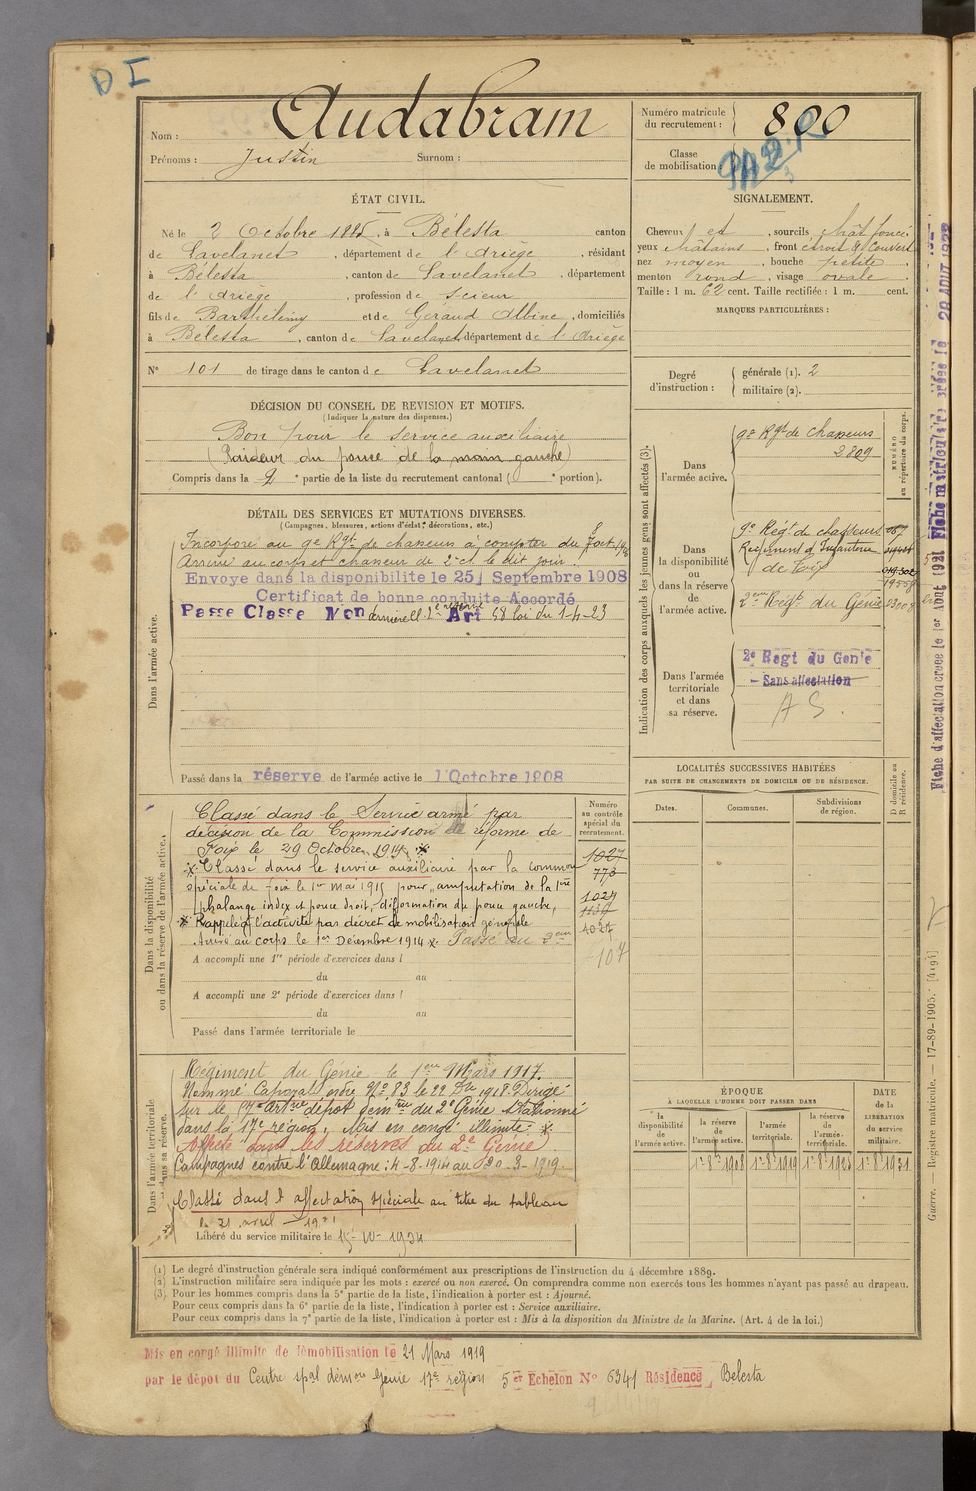 D I
Nom : Audabram
Prénoms : Justin Surnom :
Numéro matricule
du recrutement : 800
Classe
de mobilisation :
ÉTAT CIVIL.
Né le 2 Octobre 1885, à Bélesta canton
de Lavelanet, département de l'Ariège, résidant
à Bélesta, canton de Lavelanet, département
de l'Ariège, profession de scieur
fils de Barthélémy et de Geraud Albine, domiciliés
à Bélesta, canton de Lavelanet département de l'Ariège
N° 101 de tirage dans le canton de Lavelanet
SIGNALEMENT.
Cheveux et, sourcils chât foncé
yeux châtains, front étroit & couvert
nez moyen, bouche petite,
menton rond, visage ovale.
Taille : 1 m. 62 cent. Taille rectifiée : 1 m. cent.
MARQUES PARTICULIÈRES :
Degré
d'instruction :
générale (1). 2
militaire (2).
DÉCISION DU CONSEIL DE REVISION ET MOTIFS.
(Indiquer la nature des dispenses.)
Bon pour le service auxiliaire
(Raideur du pouce de la main gauche)
Compris dans la 2e partie de la liste du recrutement cantonal ( e portion).
DÉTAIL DES SERVICES ET MUTATIONS DIVERSES.
(Campagnes, blessures, actions d'éclat, décorations, etc.)
Dans l'armée active.
Incorporé au 9e Rgt de chasseurs à compter du
Arrivé au corps et chasseur de 2e cl. le dit jour.
Envoyé dans la disponibilité le 25 Septembre 1908
Certificat de bonne conduite Accordé
Passé Classe Mon dernière cl. 2e réserve Art 58 loi du 1-4-23
Passé dans la réserve de l'armée active le 1 Octobre 1908
Indication des corps auxquels les jeunes gens sont affectés (3).
NUMÉRO
au répertoire du corps.
Dans
l'armée active.
9e Rgt de chasseurs
2809
Dans
la disponibilité
ou
dans la réserve
de
l'armée active.
9e Regt de chasseurs
Régiment d'Infanterie
de Foix
2eme Regt du Génie
Dans l'armée
territoriale
et dans
sa réserve.
2e Regt du Génie
Sans affectation
A S.
Dans la disponibilité
ou dans la réserve de l'armée active.
Classé dans le Service armé par
décision de la Commission de réforme de
Foix le 29 Octobre 1914 *
* Classé dans le service auxiliaire par la common
spéciale de foix le 1er mai 1915 pour amputation de la 1ère
phalange index et pouce droit, difformation du pouce gauche,
* Rappelé à l'activité par décret de mobilisation générale
Arrivé au corps le 1er Décembre 1914 x. Passé au 2eme
A accompli une 1re période d'exercices dans l
du au
A accompli une 2e période d'exercices dans l
du au
Passé dans l'armée territoriale le
Numéro
au contrôle
spécial du
recrutement.
1027
773
1024
1027
107
LOCALITÉS SUCCESSIVES HABITÉES
PAR SUITE DE CHANGEMENTS DE DOMICILE OU DE RÉSIDENCE.
Dates. Communes. Subdivisions
de région.
D domicile ou
R résidence.
Dans l'armée territoriale
et dans sa réserve.
Régiment du Génie le 1er Mars 1917.
Nommé Caporal ordre No 83 le 22 Dbre 1918. Dirigé
sur le dépôt du 2e Génie Stationné
dans la 17e région, Mis en congé illimité *
Affecté dans les réserves du 2e Génie
Campagnes contre l'Allemagne : 4-8-1914 au 20-3-1919.
Classé dans l'affectation spéciale au titre du tableau
le 21 avril
Libéré du service militaire le 15-10-1934
ÉPOQUE
À LAQUELLE L'HOMME DOIT PASSER DANS
la
disponibilité
de
l'armée active.
la réserve
de
l'armée active.
l'armée
territoriale.
la réserve
de
l'armée
territoriale.
DATE
de la
LIBÉRATION
du service
militaire.
1er 8bre 1908 1er 8bre 1919 1er 8bre 1925 1er 8bre 1931
(1) Le degré d'instruction générale sera indiqué conformément aux prescriptions de l'instruction du 4 décembre 1889.
(2) L'instruction militaire sera indiquée par les mots : exercé ou non exercé. On comprendra comme non exercés tous les hommes n'ayant pas passé au drapeau.
(3) Pour les hommes compris dans la 5e partie de la liste, l'indication à porter est : Ajourné.
Pour ceux compris dans la 6e partie de la liste, l'indication à porter est : Service auxiliaire.
Pour ceux compris dans la 7e partie de la liste, l'indication à porter est : Mis à la disposition du Ministre de la Marine. (Art. 4 de la loi.)
Mis en congé illimité de démobilisation le 21 Mars 1919
par le dépôt du Centre spal démon Génie 17e région 5e Echelon No 6341 Résidence, Belesta
Fiche d'affectation créée le 1er Août 1921 Fiche matriculaire créée le 20 AOUT 1922
Guerre. — Registre matricule. — 17-89-1905. [4194]